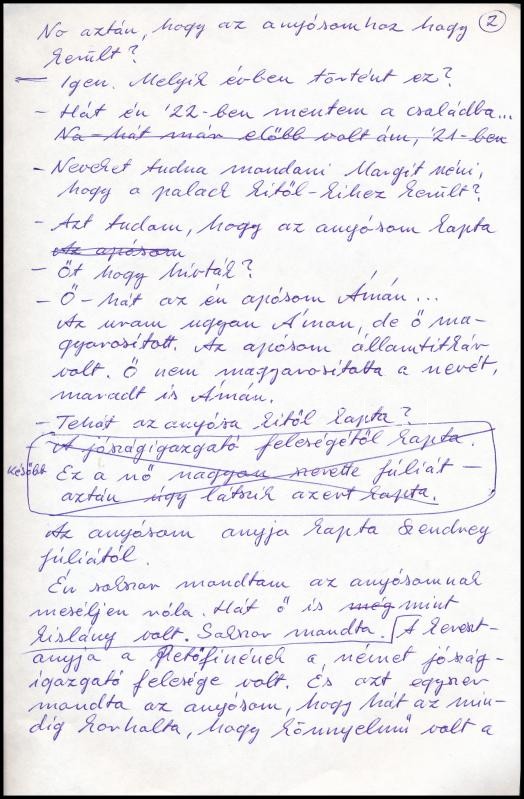 No aztán, hogy az anyósomhoz hogy ②
került?
Igen. Melyik évben történt ez?
- Hát én '22-ben mentem a családba...
Na-hát már előbb volt ám, '21-ben
- Neveket tudna mondani Margit néni,
hogy a palack kitől-kihez került?
- Azt tudom, hogy az anyósom kapta
Az apósom
- Őt hogy hívták?
- Ő-hát az én apósom Ámán...
Az uram ugyan Áman, de ő ma-
gyarosított. Az apósom államtitkár
volt. Ő nem magyarosította a nevét,
maradt is Ámán.
- Tehát az anyósa kitől kapta?
- A jószágigazgató feleségétől kapta.
később
Ez a nő nagyon szerette Júliát -
aztán úgy látszik azért kapta.
Az anyósom anyja kapta Szendrey
Júliától.
Én sokszor mondtam az anyósomnak
meséljen róla. Hát ő is még mint
kislány volt. Sokszor mondta. A kereszt-
anyja a Petőfinének a német jószág-
igazgató felesége volt. És azt egyszer
mondta az anyósom, hogy hát az min-
dig korholta, hogy könnyelmű volt a